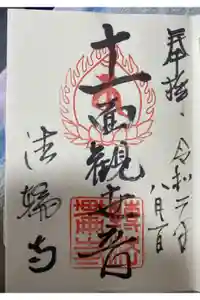 奉拝
令和二年
八月一日
十一面観世音
法輪寺